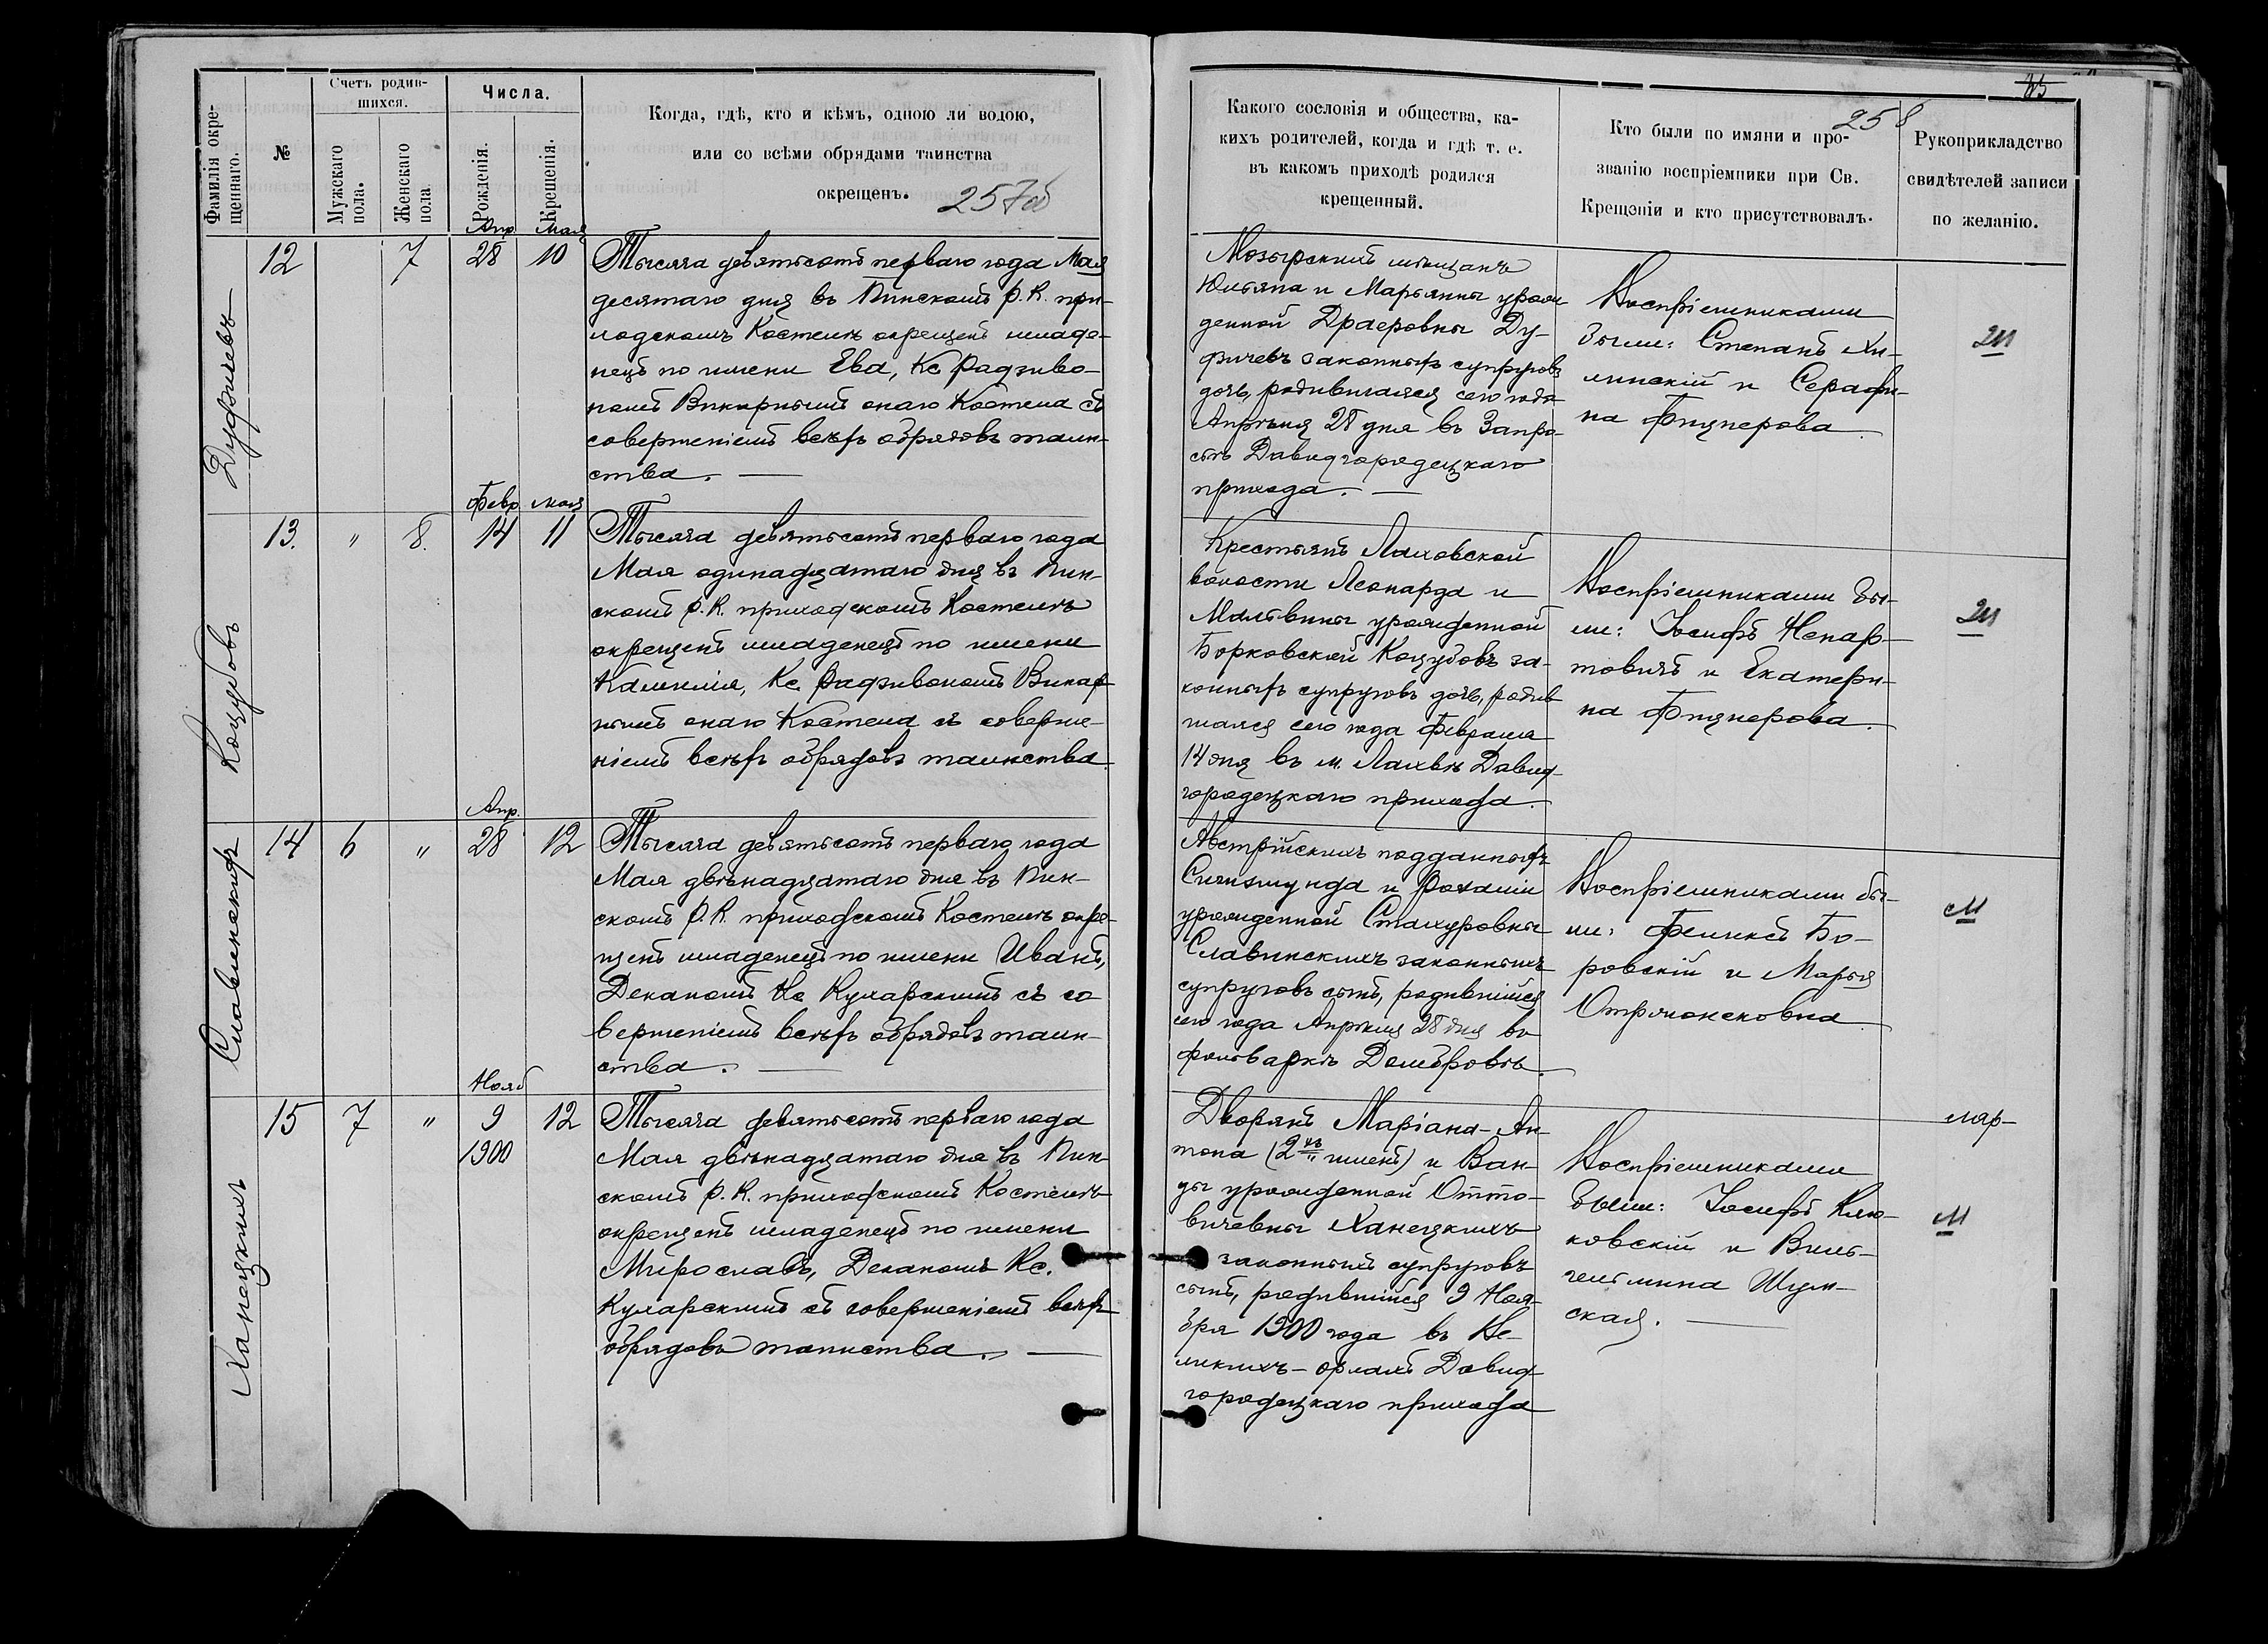 Фамилія окре-
щеннаго.
№
Счетъ родив-
шихся.
Мужскаго
пола.
Женскаго
пола
Числа.
Рожденія.
Крещенія.
Когда, гдѣ, кто и кѣмъ, одною ли водою,
или со всѣми обрядами таинства
окрещенъ.
257об
Дуфичевъ
12
7
Апр.
28
Мая
10
Тысяча девятьсотъ перваго года Мая
десятаго дня въ Пинскомъ Р. К. при-
ходскомъ Костелѣ окрещенъ младе-
нецъ по имени Ева, Кс Радзиво-
номъ Викарнымъ онаго Костела съ
совершеніемъ всѣхъ обрядовъ таин-
ства. —
Коцубовъ
13.
"
8.
Февр
14
мая
11
Тысяча девятьсотъ перваго года
Мая одинадцатаго дня въ Пин-
скомъ Р. К. приходскомъ Костелѣ
окрещенъ младенецъ по имени
Камилія, Кс. Радзивономъ Викар
нымъ онаго Костела съ соверше-
ніемъ всѣхъ обрядовъ таинства.
Славинскихъ
14
6
"
Апр.
28
12
Тысяча девятьсотъ перваго года
Мая двѣнадцатаго дня въ Пин-
скомъ Р. К. приходскомъ Костелѣ окре-
щенъ младенецъ по имени Иванъ,
Деканомъ Кс Кухарскимъ съ со
вершеніемъ всѣхъ обрядовъ таин-
ства. —
Ханецкихъ
15
7
"
Нояб
9
1900
12
Тысяча девятьсотъ перваго года
Мая двѣнадцатаго дня въ Пин-
скомъ Р. К. приходскомъ Костелѣ
окрещенъ младенецъ по имени
Мирославъ, Деканомъ Кс.
Кухарскимъ съ совершеніемъ всѣхъ
обрядовъ таинства. —
258
Какого сословія и общества, ка-
кихъ родителей, когда и гдѣ т. е.
въ какомъ приходѣ родился
крещенный.
Кто были по имяни и про-
званію воспріемники при Св.
Крещеніи и кто присутствовалъ.
Рукоприкладство
свидѣтелей записи
по желанію.
Мозырскихъ мѣщанъ
Юльяна и Марьянны урож
денной Драеровны Ду-
фичевъ законныхъ супруговъ
дочь, родившаяся сего года
Апрѣля 28 дня въ
Давидгородецкаго
прихода. —
Воспріемниками
были: Степанъ Хи-
линскій и Серафи-
на Фицнерова.
Крестьянъ Лаховской
волости Леонарда и
Мальвины урожденной
Борковской Коцубовъ за-
конныхъ супруговъ дочь, родив
шаяся сего года Февраля
14 дня въ м. Лахвѣ Давид-
городецкаго прихода.
Воспріемниками бы-
ли: Іосифъ Ненар-
товичъ и Екатери-
на Фицнерова.
Австрійскихъ подданныхъ
Сигизмунда и Розаліи
урожденной Стахуровны
Славинскихъ законныхъ
супруговъ сынъ, родившійся
сего года Апрѣля 28 дня во
фольваркѣ Домбровѣ.
Воспріемниками бы-
ли: Феликсъ Бо-
ровскій и Марья
М
Дворянъ Маріана-Ан-
тона (2хъ именъ) и Ван-
ды урожденной Отто-
вичевны Ханецкихъ
законныхъ супруговъ
сынъ, родившійся 9 Ноя-
бря 1900 года въ Ве-
ликихъ-орлахъ Давид-
городецкаго прихода
Воспріемниками
были: Іосифъ Клю-
ковскій и Виль-
гельмина Шум-
ская. —
М